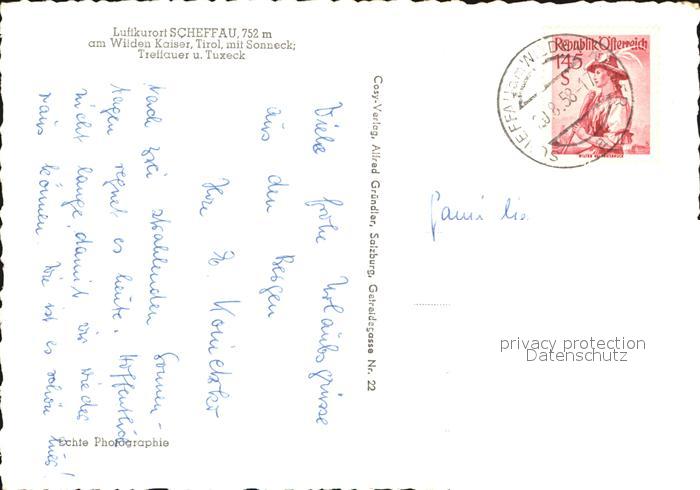 Luftkurort SCHEFFAU, 752 m
am Wilden Kaiser, Tirol, mit Sonneck;
Treffauer u. Tuxeck
Viele frohe Urlaubsgrüsse
aus den Bergen
Ihre
Nach zwei strahlenden Sonnen-
tagen regnet es heute. Hoffentlich
nicht lange, damit wir wieder
raus können. Wie ist es schön hier!
Echte Photographie
Cosy-Verlag, Alfred Gründler, Salzburg, Getreidegasse Nr. 22
Republik Österreich
1·45
S
SCHEFFAU am WILDEN
20.8.58-17
Familie
privacy protection
Datenschutz